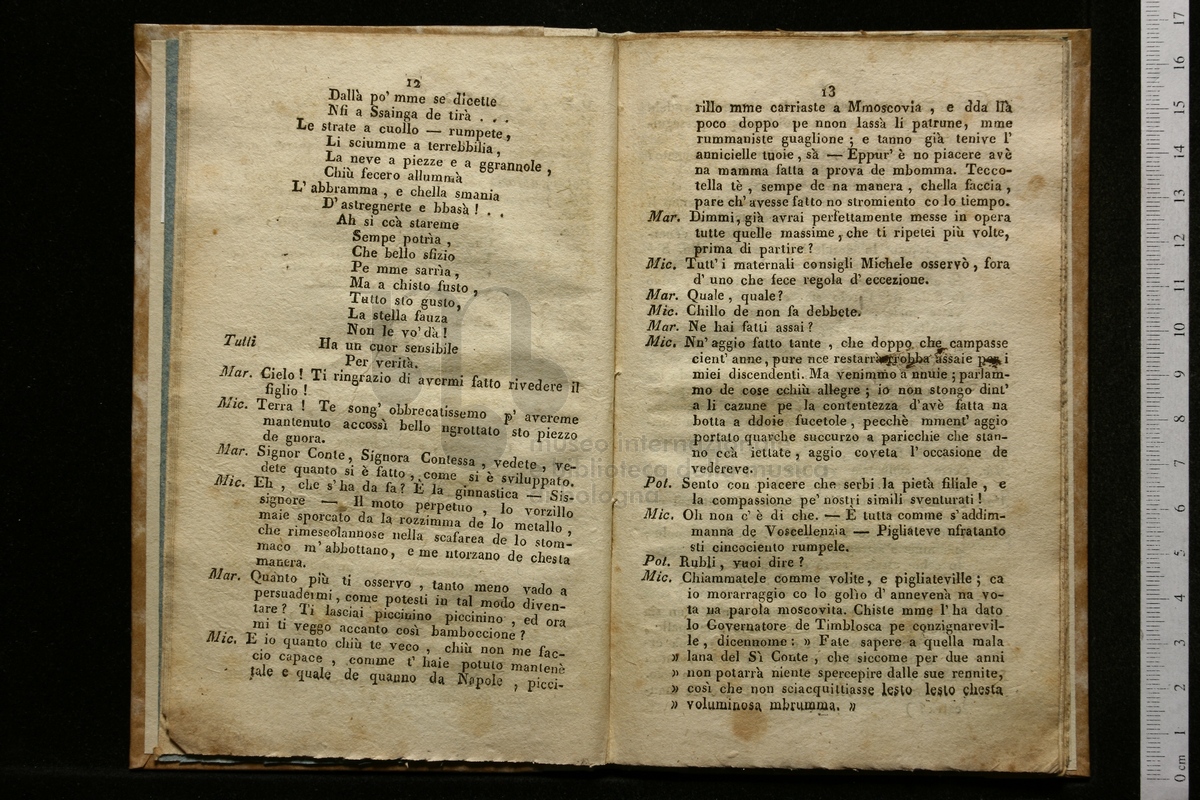 12
Dallà po' mme se dicette
Nfi a Ssainga de tirà . . .
Le strate a cuollo — rumpete,
Li sciumme a terrebbilia,
La neve a piezze e a ggrannole,
Chiù fecero allummà
L' abbramma, e chella smania
D' astregnerte e bbasà ! . .
Ah si ccà stareme
Sempe potrìa,
Che bello sfizio
Pe mme sarrìa,
Ma a chisto fusto,
Tutto sto gusto,
La stella fauza
Non le vo' dà !
Tutti Ha un cuor sensibile
Per verità.
Mar. Cielo ! Ti ringrazio di avermi fatto rivedere il
figlio !
Mic. Terra ! Te song' obbrecatissemo p' avereme
mantenuto accossì bello ngrottato sto piezzo
de guora.
Mar. Signor Conte, Signora Contessa, vedete, ve-
dete quanto si è fatto, come si è sviluppato.
Mic. Eh, che s' ha da fa? E la ginnastica — Sis-
signore — Il moto perpetuo, lo vorzillo
maie sporcato da la rozzimma de lo metallo,
che rimescolannose nella scafarea de lo stom-
maco m' abbottano, e me ntorzano de chesta
manera.
Mar. Quanto più ti osservo, tanto meno vado a
persuadermi, come potesti in tal modo diven-
tare? Ti lasciai piccinino piccinino, ed ora
mi ti veggo accanto così bamboccione?
Mic. E io quanto chiù te veco, chiù non me fac-
cio capace, comme t' haie potuto mantenè
tale e quale de quanno da Napole, picci-
13
rillo mme carriaste a Mmoscovia, e dda llà
poco doppo pe nnon lassà li patrune, mme
rummaniste guaglione ; e tanno già tenive l'
annicielle tuoie, sà — Eppur' è no piacere avè
na mamma fatta a prova de mbomma. Tecco-
tella tè, sempe de na manera, chella faccia,
pare ch' avesse fatto no stromiento co lo tiempo.
Mar. Dimmi, già avrai perfettamente messe in opera
tutte quelle massime, che ti ripetei più volte,
prima di partire?
Mic. Tutt' i maternali consigli Michele osservò, fora
d' uno che fece regola d' eccezione.
Mar. Quale, quale?
Mic. Chillo de non fa debbete.
Mar. Ne hai fatti assai?
Mic. Nn' aggio fatto tante, che doppo che campasse
cient' anne, pure nce restarrà rrobba assaie pe i
miei discendenti. Ma venimmo a nnuie ; parlam-
mo de cose cchiù allegre ; io non stongo dint'
a li cazune pe la contentezza d' avè fatta na
botta a ddoie fucetole, pecchè mment' aggio
portato quarche succurzo a paricchie che stan-
no ccà iettate, aggio coveta l' occasione de
vedereve.
Pot. Sento con piacere che serbi la pietà filiale, e
la compassione pe' nostri simili sventurati !
Mic. Oh non c' è di che. — E tutta comme s' addim-
manna de Voscellenzia — Pigliateve nfratanto
sti cincociento rumpele.
Pot. Rubli, vuoi dire?
Mic. Chiammatele comme volite, e pigliateville ; ca
io morarraggio co lo golìo d' annevenà na vo-
ta na parola moscovita. Chiste mme l' ha dato
lo Governatore de Timblosca pe conzignarevil-
le, dicennome : » Fate sapere a quella mala
» lana del Sì Conte, che siccome per due anni
» non potarrà niente spercepire dalle sue rennite,
» così che non sciacquittiasse lesto lesto chesta
» voluminosa mbrumma. »
museo internazionale
biblioteca della musica
bologna
17
16
15
14
13
12
11
10
9
8
7
6
5
4
3
2
1
0 cm